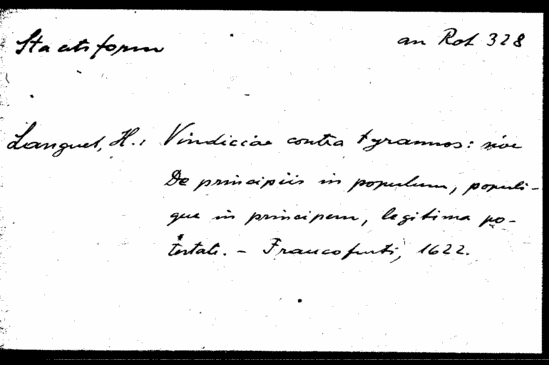 Staatsform
an Rot 328
Languet, H.: Vindiciae contra tyrannos: sive
De principiis in populum, populi-
que in principem, legitima po-
testate. - Francofurti, 1622.